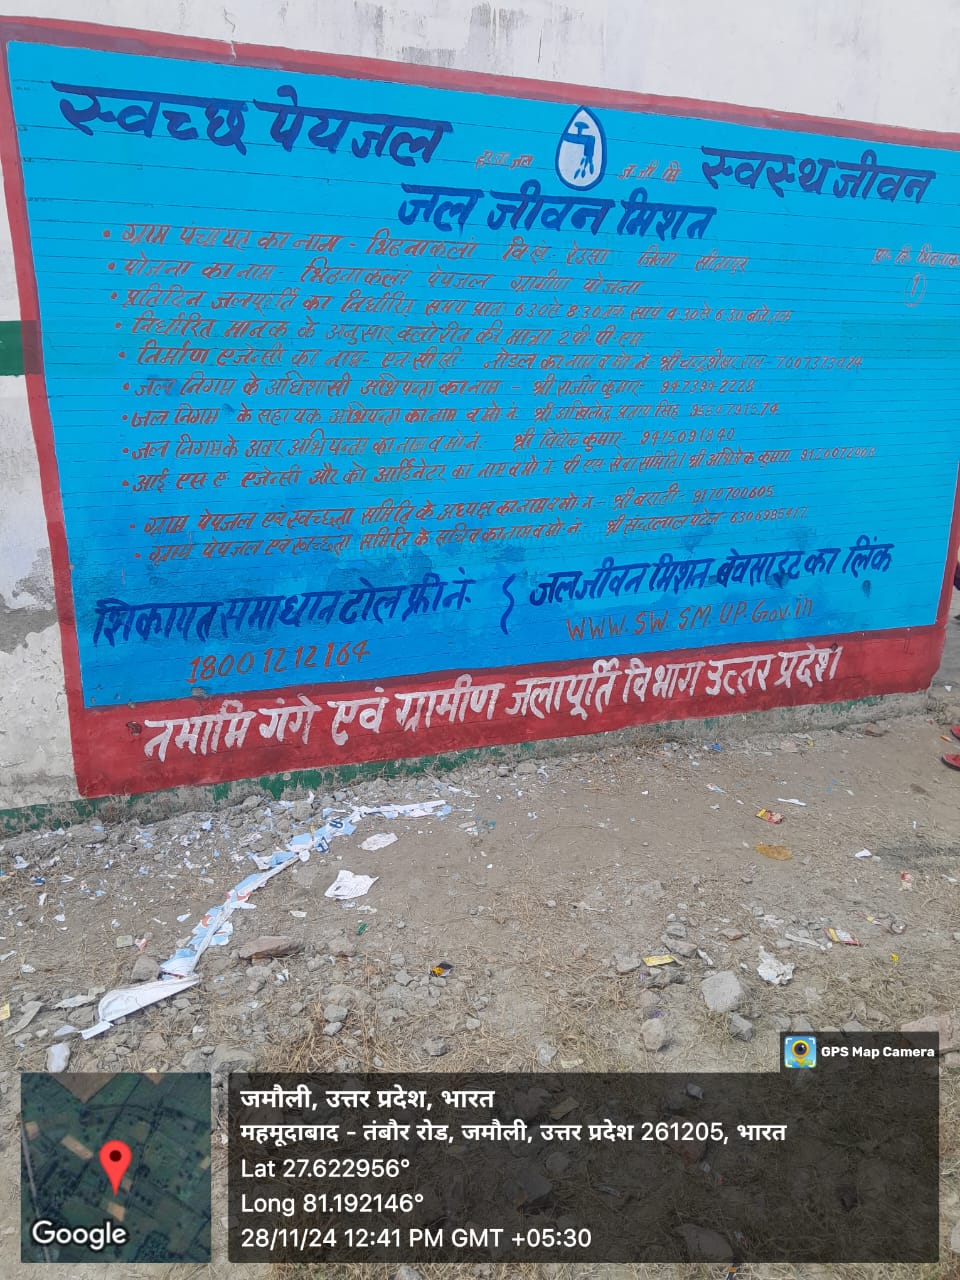 स्वच्छ पेयजल
हर घर जल
ज जी मि
स्वस्थ जीवन
जल जीवन मिशन
• ग्राम पंचायत का नाम - भिठनाकलां वि0ख0 रेउसा जिला सीतापुर
• योजना का नाम- भिठनाकलां पेयजल ग्रामीण योजना
①
• प्रतिदिन जलापूर्ति का निर्धारित समय प्रातः 6:30 से 8:30 तक सायं 4:30 से 6:30 बजे तक
• निर्धारित मानक के अनुसार क्लोरीन की मात्रा 2 पी पी एम
• निर्माण एजेन्सी का नाम- एन सी सी. नोडल का नाम व मो नं श्री चन्द्रशेखर
• जल निगम के अधिशासी अभियन्ता का नाम - श्री राजीव कुमार- 9473942228
• जल निगम के सहायक अभियन्ता का नाम व मो नं श्री प्रताप सिंह
• जल निगम के अवर अभियन्ता का नाम व मो नं- श्री विवेक कुमार- 9415091840
• आई एस ए एजेन्सी और को आर्डिनेटर का नाम व मो नं पी एस सेवा समिति। श्री अभिषेक कुमार
• ग्राम पेयजल एवं स्वच्छता समिति के अध्यक्ष का नाम व मो नं- श्री बराती- 9170700605
• ग्राम पेयजल एवं स्वच्छता समिति के सचिव का नाम व मो नं- श्री पटेल
शिकायत समाधान टोल फ्री नं. { जल जीवन मिशन-बेवसाइट का लिंक
18001212164
WWW. SW. SM. UP. Gov. in
नमामि गंगे एवं ग्रामीण जलापूर्ति विभाग उत्तर प्रदेश
GPS Map Camera
जमौली, उत्तर प्रदेश, भारत
महमूदाबाद - तंबौर रोड, जमौली, उत्तर प्रदेश 261205, भारत
Lat 27.622956°
Long 81.192146°
28/11/24 12:41 PM GMT +05:30
Google